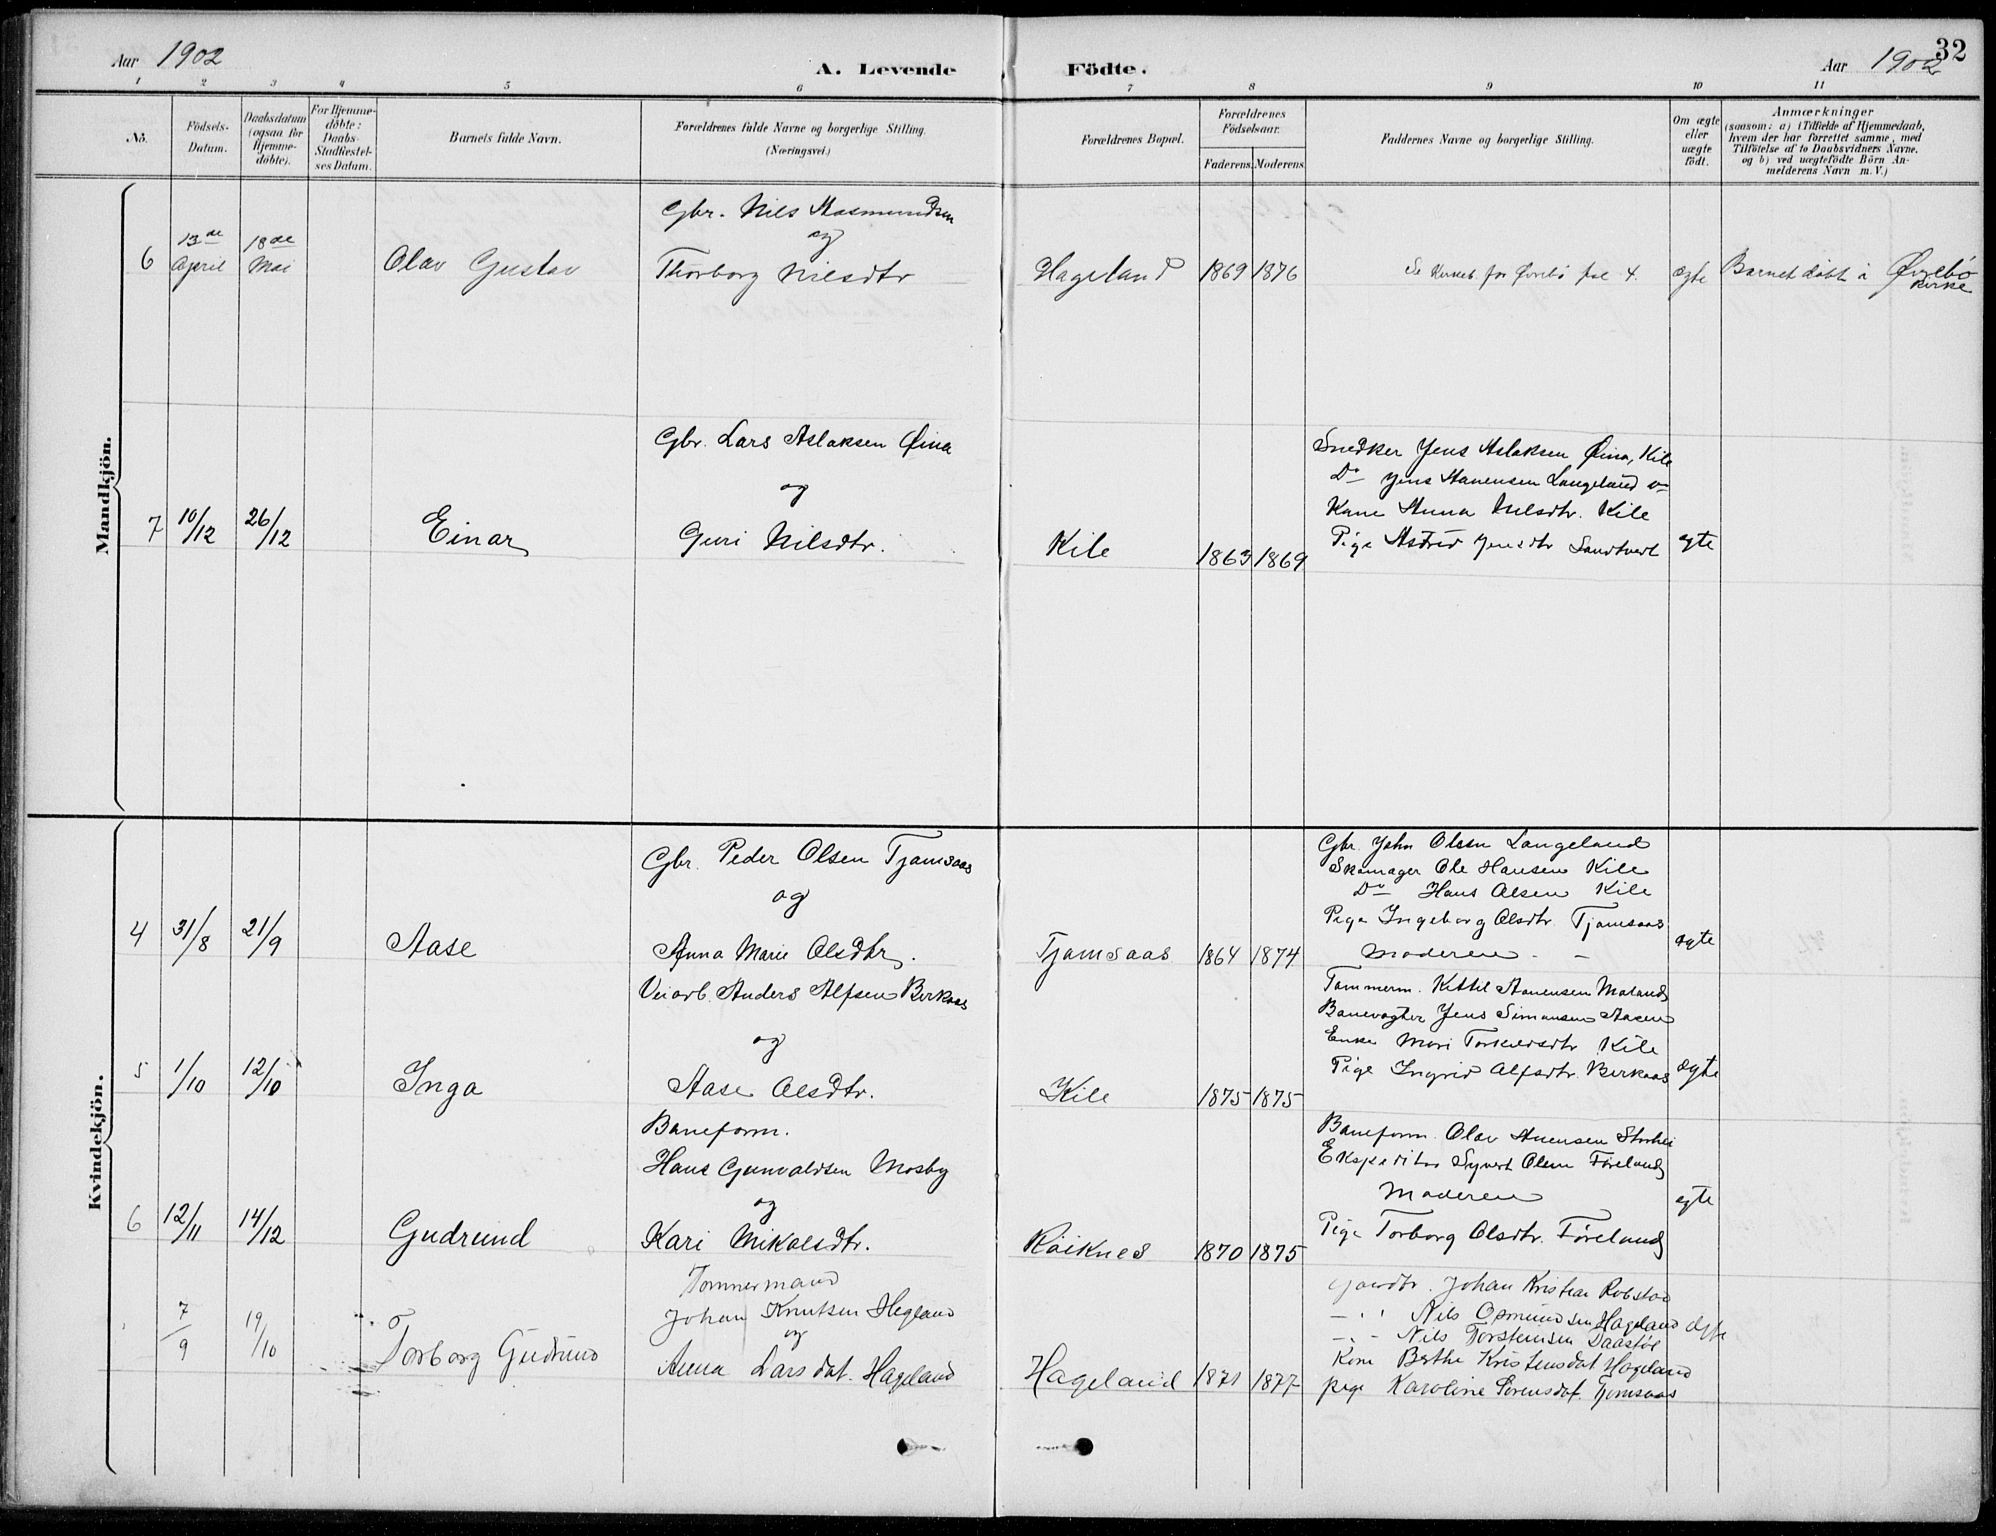 Aar 1902
A. Levende Födte.
Aar 1902
32
1 2 3 4 5 6 7 8 9 10 11
No.
Födsels-Datum.
Daabsdatum (ogsaa for Hjemme-döbte).
For Hjemme-döbte: Daabs-Stadfæstel-ses Datum.
Barnets fulde Navn.
Forældrenes fulde Navne og borgerlige Stilling. (Næringsvei.)
Forældrenes Bopæl.
Forældrenes Födselsaar.
Faderens. Moderens.
Faddernes Navne og borgerlige Stilling.
Om ægte eller uægte födt.
Anmærkninger
(saasom: a) i Tilfælde af Hjemmedaab,
hvem der har forrettet samme, med
Tilföielse af to Daabsvidners Navne.
og b) ved uægtefödte Börn An-
melderens Navn m. V.)
Mandkjön.
6
13de April
18de Mai
Olav Gustav
Gbr. Nils Aasmundsen
og
Thorborg Nilsdtr
Hageland
1869 1876
Se Kirkeb. for Øvrebö fol 4.
ægte
Barnet döbt i Øvrebö Kirke
7
10/12
26/12
Einar
Gbr. Lars Aslaksen Øina
og
Guri Nilsdtr.
Kile
1863 1869
Snedker Jens Aslaksen Øina, Kile
Do Jens Aanensen Langeland
Kone Anna Nilsdtr. Kile
Pige Astrid Jensdtr Sandtvert
egte
Kvindekjön.
4
31/8
21/9
Aase
Gbr. Peder Olsen Tjamsaas
og
Anna Marie Olsdtr.
Tjamsaas
1864 1874
Gbr. John Olsen Langeland
Skomager Ole Hansen Kile
Do Hans Olsen Kile
Pige Ingeborg Olsdtr. Tjomsaas
Moderen
egte
5
1/10
12/10
Inga
Veiarb. Anders Alfsen Birkaas
og
Aase Olsdtr.
Kile
1875 1875
Tømmerm. Kittil Aanensen Moland
Banevogter Jens Simonsen Aasen
Enke Mari Torkildsdtr Kile
Pige Ingrid Alfsdtr. Birkaas
egte
6
12/11
14/12
Gudrund
Baneform.
Hans Gunvaldsen Mosby
og
Kari Nikolsdtr.
Röiknes
1870 1875
Baneform. Olav Anensen Storhei
Ekspeditør Syvert Olsen Føreland
Moderen
Pige Torborg Olsdtr. Føreland
egte
7/9
19/10
Torborg Gudrun
Tømmermand
Johan Knutsen Hegland
og
Anna Larsdat. Hageland
Hageland
1871 1877
Johan Kristian Robstad
Nils Osmundsen Hageland
Nils Torsteinsen Daastøl
Kone Berthe Kristensdat Hageland
pige Karoline Sørensdat. Tjomsaas
egte